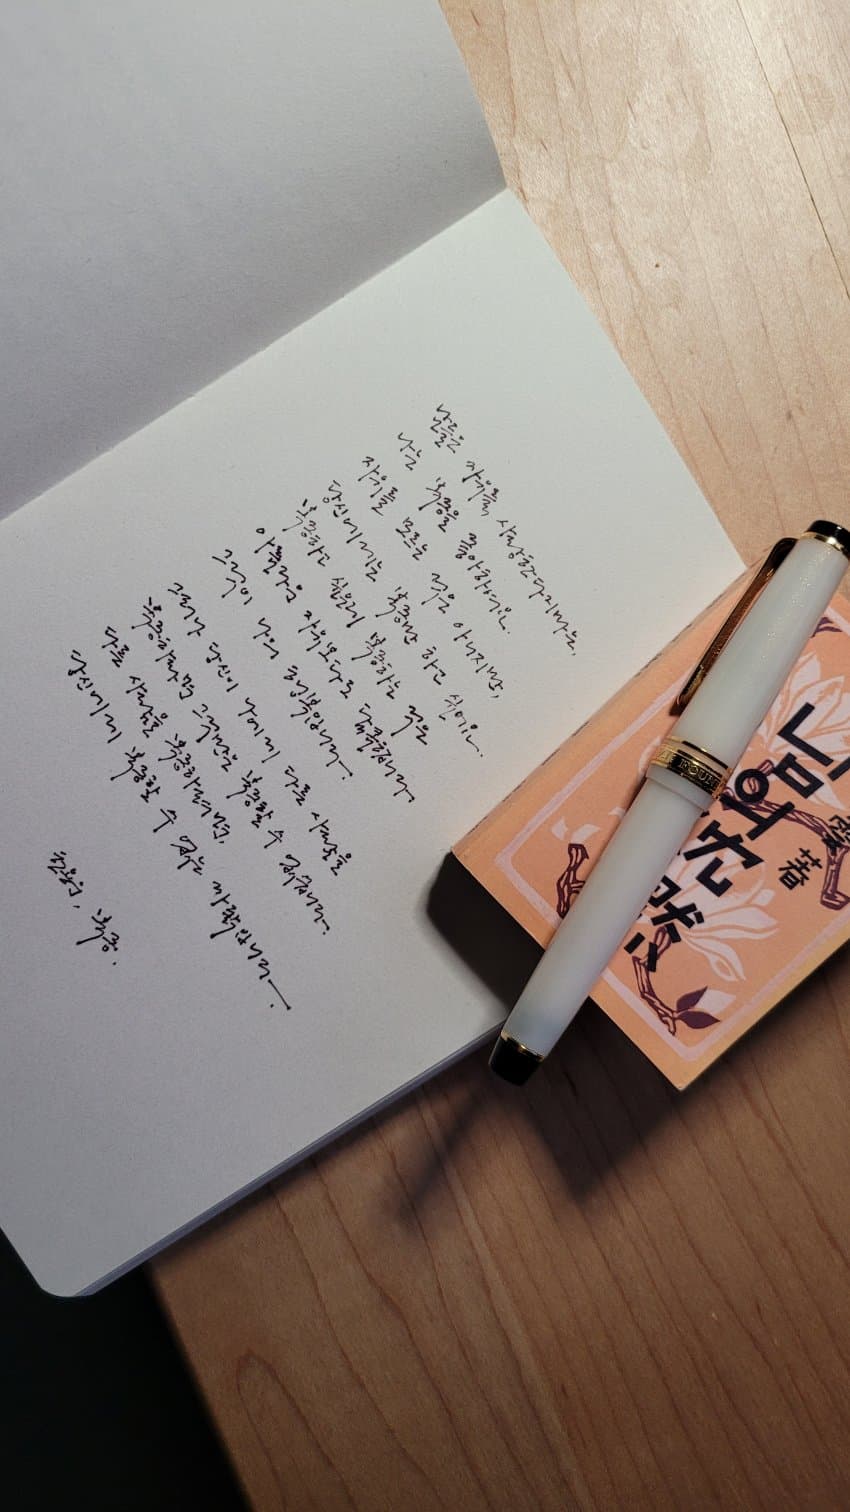 남들은 자유를 사랑한다지마는,
나는 복종을 좋아하여요.
자유를 모르는 것은 아니지만,
당신에게는 복종만 하고 싶어요.
복종하고 싶은데 복종하는 것은
아름다운 자유보다도 달콤합니다.
그것이 나의 행복입니다.
그러나 당신이 나더러 다른 사람을
복종하라면 그것만은 복종할 수 없습니다.
다른 사람을 복종하려면,
당신에게 복종할 수 없는 까닭입니다.
한용운, 복종.
님의沈默
著